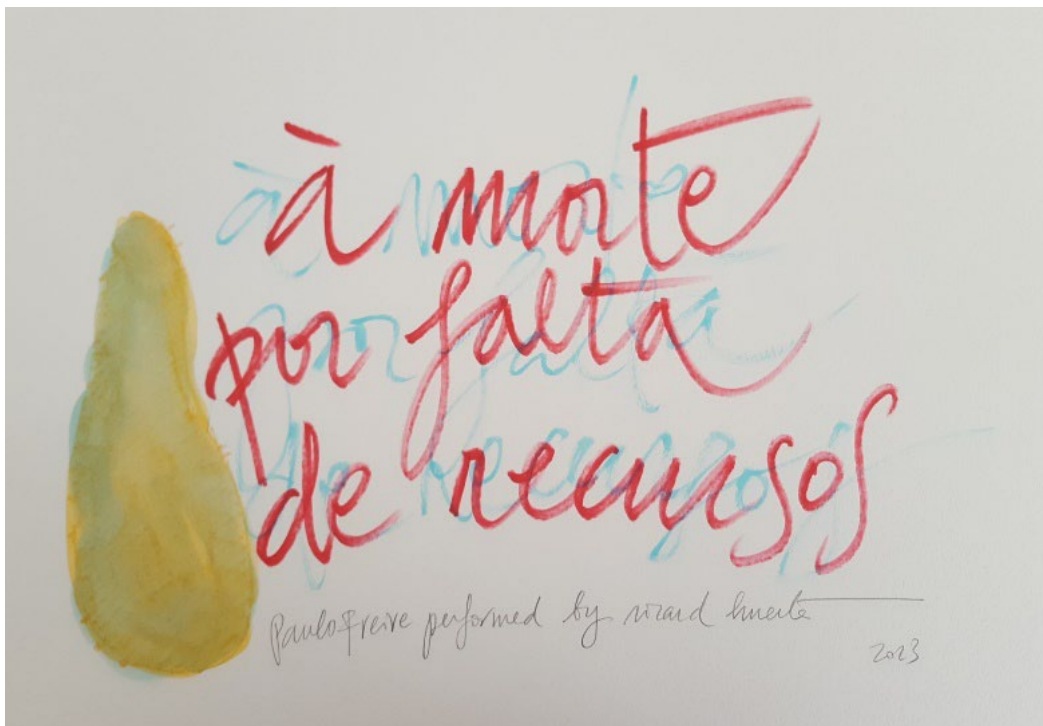 à morte
por falta
de recursos
Paulo Freire performed by ricard huerta
2023